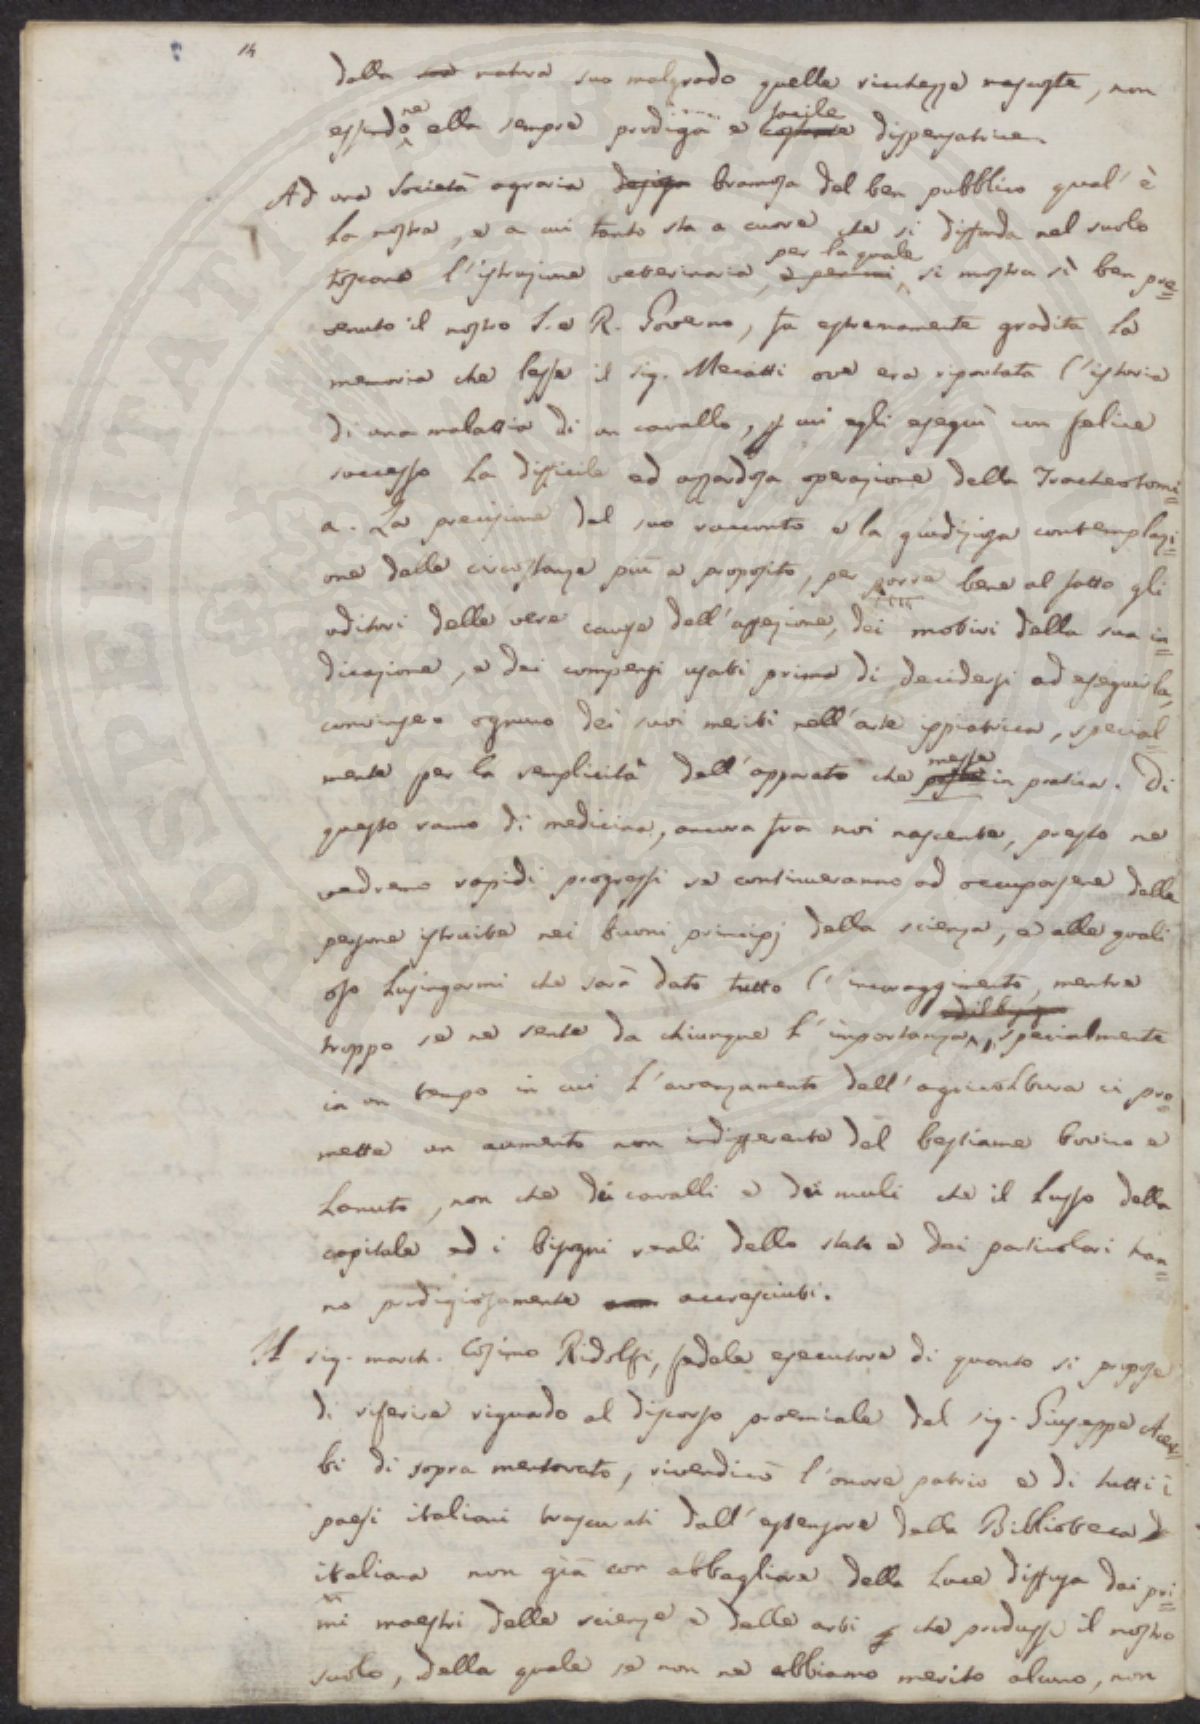 14
dalla sua natura suo malgrado quelle ricchezze nascoste, non
essendo ne ella sempre prodiga e facile dispensatrice.
Ad una società agraria bramosa del ben pubblico qual'è
la nostra, e a cui tanto sta a cuore che si diffonda nel suolo
toscano l'istruzione veterinaria, per la quale si mostra sì ben pre=
venuto il nostro I. e R. Governo, fu estremamente gradita la
memoria che lesse il sig. Mecatti ove era riportata l'istoria
di una malattia di un cavallo, cui egli eseguì con felice
successo la difficile ed azzardosa operazione della Tracheotomi=
a. La precisione del suo racconto e la giudiziosa contemplazi=
one delle circostanze più a proposito, per porre bene al fatto gli
uditori delle vere cause dell'affezione, dei motivi della sua in=
dicazione, e dei compensi usati prima di decidersi ad eseguirla,
convinsero ognuno dei suoi meriti nell'arte ippiatrica, special=
mente per la semplicità dell'apparato che messe in pratica. Di
questo ramo di medicina, ancora fra noi nascente, presto ne
vedremo rapidi progressi se continueranno ad occuparsene delle
persone istruite nei buoni principj della scienza, e alle quali
oso lusingarmi che sarà dato tutto l'incoraggimento, mentre
troppo se ne sente da chiunque l'importanza, specialmente
in un tempo in cui l'avanzamento dell'agricoltura ci pro=
mette un aumento non indifferente del bestiame bovino e
lanuto, non che dei cavalli e dei muli che il lusso della
capitale ed i bisogni reali dello stato e dei particolari han=
no prodigiosamente accresciuti.
Il sig. march. Cosimo Ridolfi, fedele esecutore di quanto si propose
di riferire riguardo al discorso proemiale del sig. Giuseppe Acer=
bi di sopra mentovato, rivendicò l'onore patrio e di tutti i
paesi italiani trascurati dall'estensore della Biblioteca
italiana non già con abbagliare della luce diffusa dai pri=
mi maestri delle scienze e delle arti che produsse il nostro
suolo, della quale se non ne abbiamo merito alcuno, non